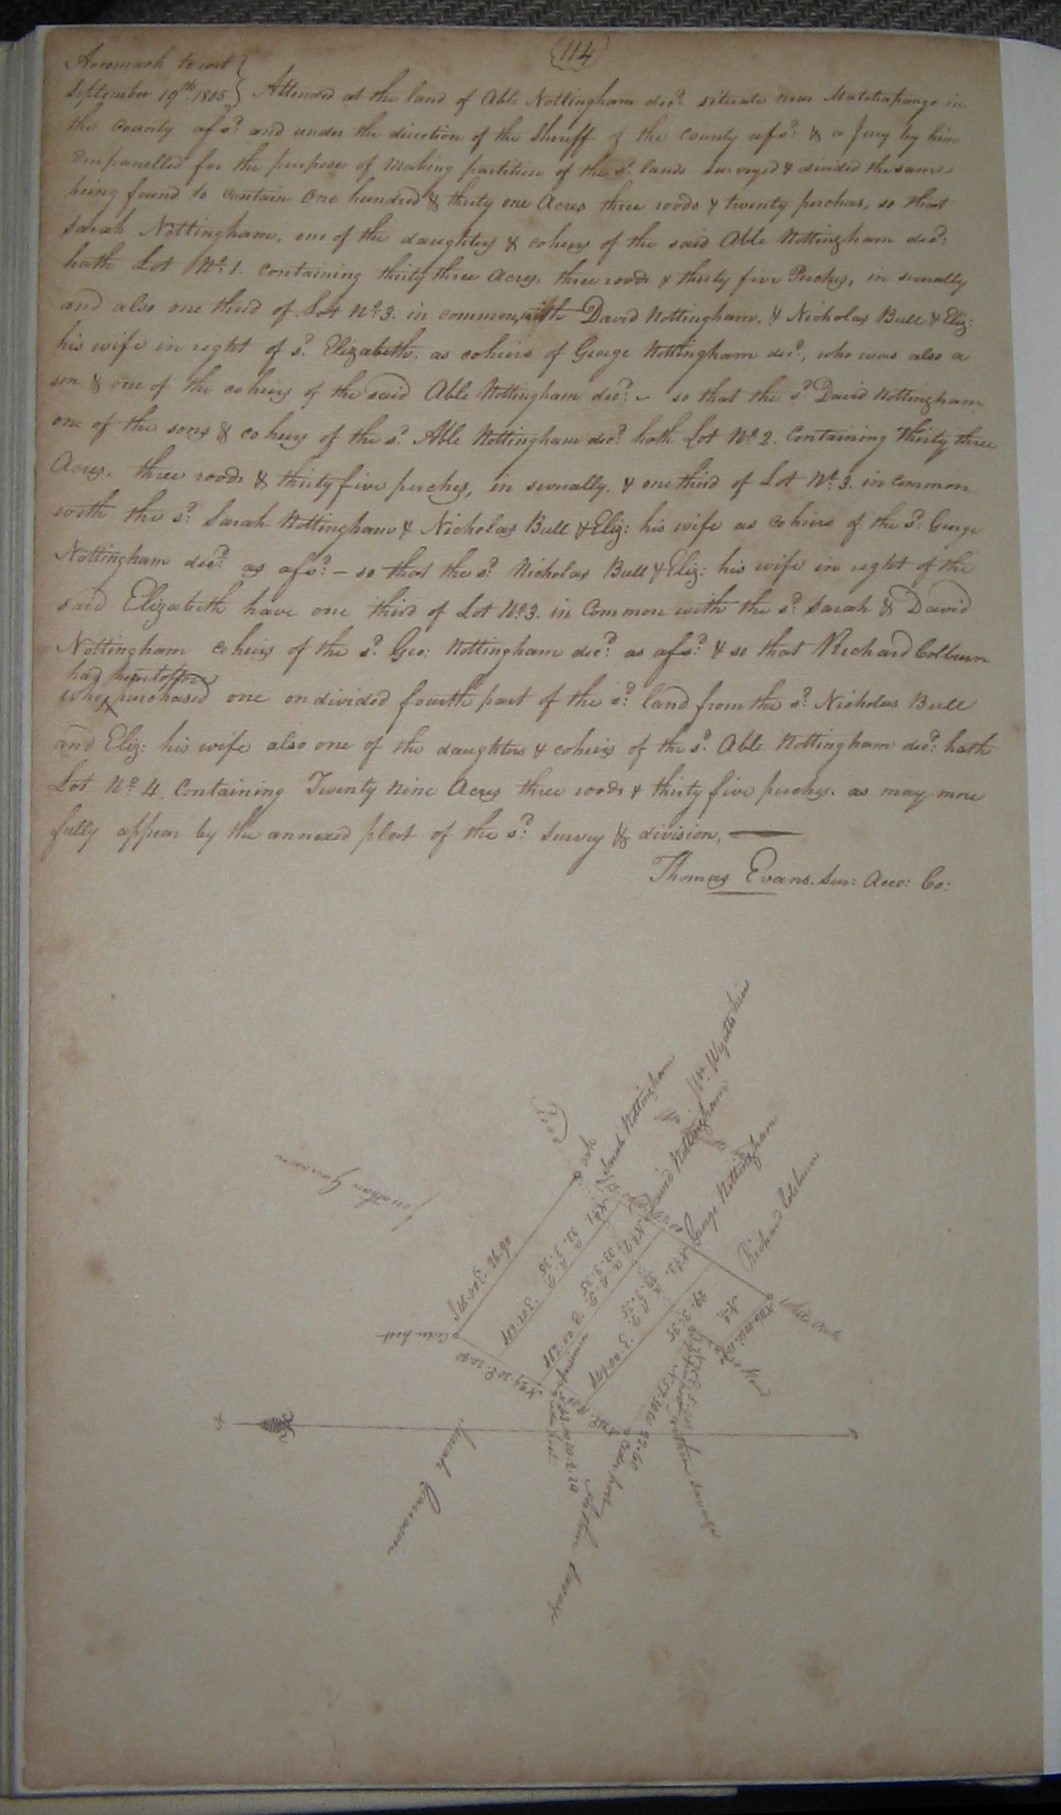 (114)
Accomack to wit
September 19th 1805 } Attended at the land of Able Nottingham decd. situate near Matchapungo in
the County afsd. and under the direction of the Sheriff of the County afsd: & a Jury by him
Empanelled for the purpose of Making partition of the sd. lands surveyed & divided the same
being found to contain One hundred & thirty one Acres three roods & twenty perches, so that
Sarah Nottingham, one of the daughters & coheirs of the said Able Nottingham decd:
hath Lot No. 1. containing thirty three Acres, three roods & thirty five Perches, in severally
and also one third of Lot No. 3. in common with David Nottingham, & Nicholas Bull & Eliz:
his wife in right of sd. Elizabeth, as coheirs of George Nottingham decd., who was also a
son & one of the coheirs of the said Able Nottingham decd: – so that the sd. David Nottingham
one of the sons & coheirs of the sd. Able Nottingham decd. hath Lot No. 2. Containing Thirty three
Acres, three roods & thirty five perches, in severally, & one third of Lot No. 3. in Common
with the sd. Sarah Nottingham & Nicholas Bull & Eliz: his wife as coheirs of the sd: George
Nottingham decd. as afsd. – so that the sd. Nicholas Bull & Eliz: his wife in right of the
said Elizabeth have one third of Lot No. 3. in Common with the sd. Sarah & David
Nottingham coheirs of the sd. Geo: Nottingham decd. as afsd. & so that Richard Colburn
had heretofore
who purchased one ondivided fourth part of the sd. land from the sd. Nicholas Bull
and Eliz: his wife also one of the daughters & coheirs of the sd. Able Nottingham decd: hath
Lot No. 4. Containing Twenty nine Acres three roods & thirty five perches. as may more
fully appear by the annexed plat of the sd. Survey & division,
Thomas Evans. Sur: Acco: Co:
Wm. Wyatts line
Sarah Nottingham
David Nottingham
George Nottingham
Richard Colburn
White oak
Jonathan
Oak
Cedar post
No. 1
33. 3. 35
No. 2
33. 3. 35
No. 3
No. 4
29. 3. 35
Cedar post
Savage